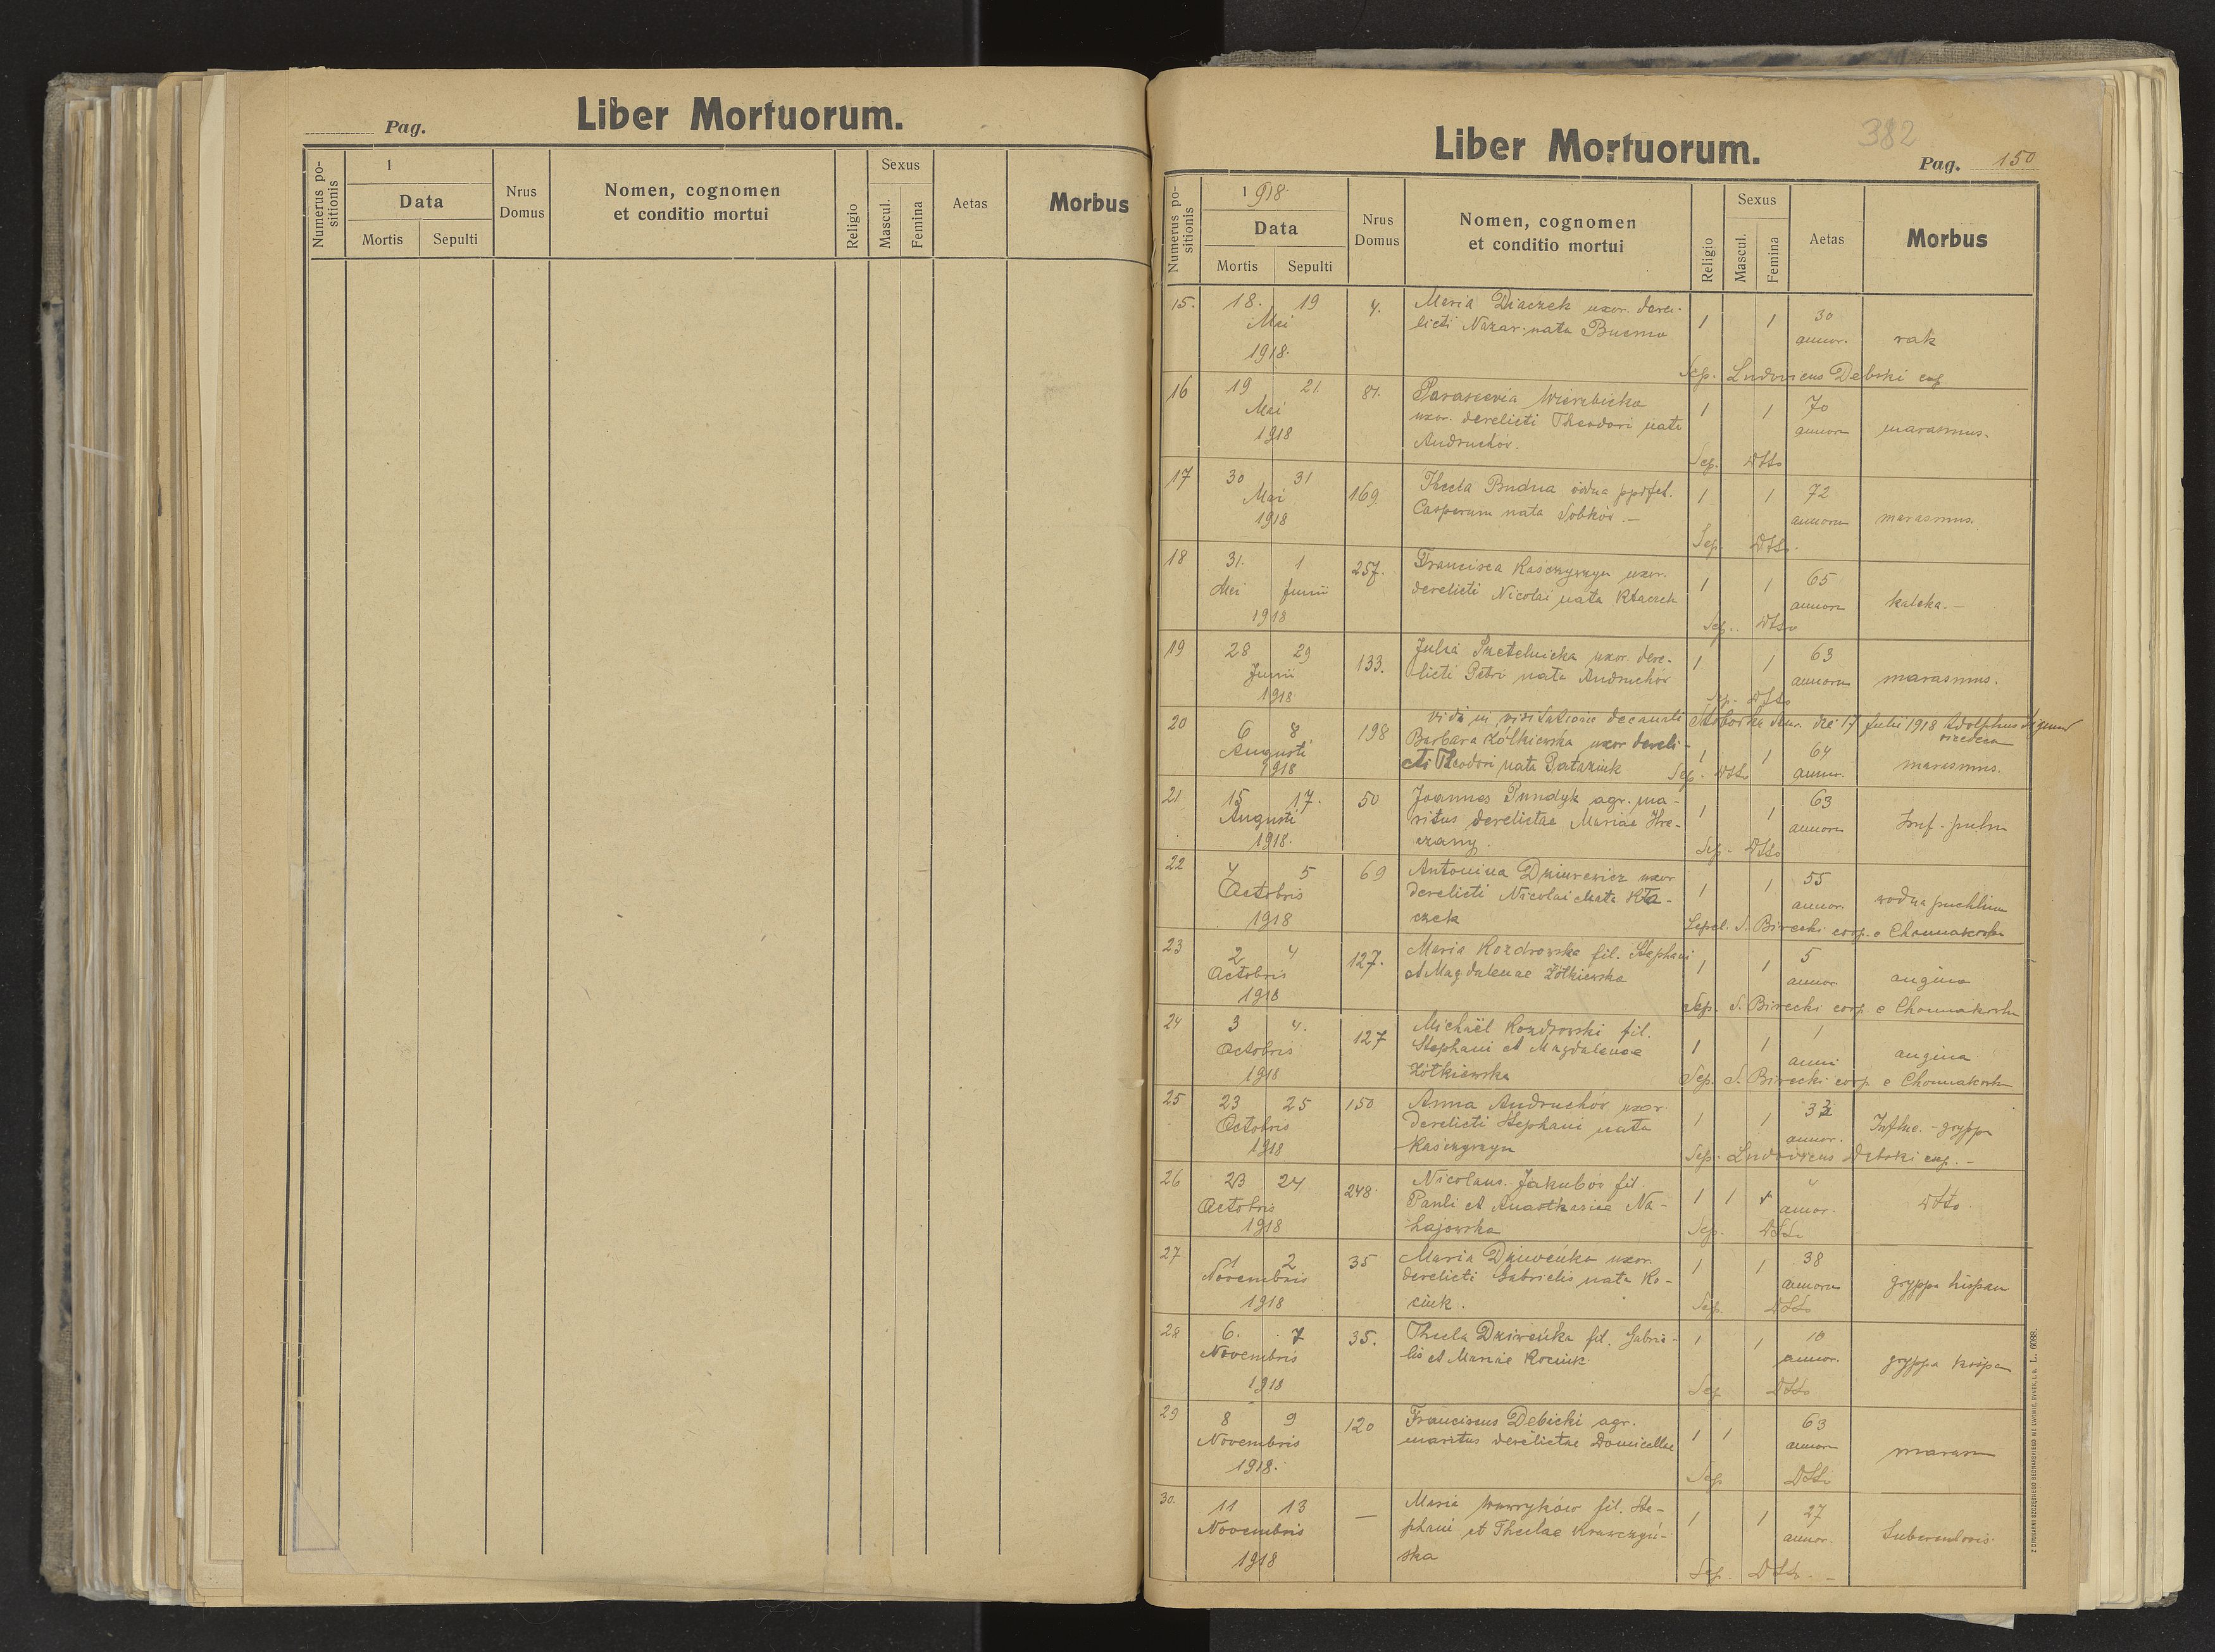 Pag.
Liber Mortuorum.
Numerus positionis
1
Data
Mortis
Sepulti
Nrus
Domus
Nomen, cognomen
et conditio mortui
Religio
Sexus
Mascul.
Femina
Aetas
Morbus
382
Liber Mortuorum.
Pag. 150
Numerus positionis
1918.
Data
Mortis
Sepulti
Nrus
Domus
Nomen, cognomen
et conditio mortui
Religio
Sexus
Mascul.
Femina
Aetas
Morbus
15. 18. 19 4. Maria Diaczek uxor. dere-
Mai licti Nazar. nata 1 1 30
1918. annor. rak
Sep. Ludovicus Debski
16 19 21. 81. Parascevia Wierzbicka
Mai uxor. derelicti Theodori nata 1 1 70
1918 Andruchów. annor marasmus.
Sep. Dtto
17 30 31 169. Thecla Budna vidua
Mai Casparum nata 1 1 72
1918 annoru marasmus.
Sep. Dtto.
18 31. 1 257. Francisca Kaszczyszyn uxor.
Mai Junii derelicti Nicolai nata Kłaczek 1 1 65
1918 annoru kaleka.
Sep. Dtto
19 28 29 133. Julia uxor. dere-
Junii licti Petri nata Andruchów 1 1 63
1918 annoru marasmus.
Sep. Dtto
Vidi in visitatione decanali die 17 Julii 1918 Adolphus
20 6 8 198 Barbara Żółkiewska uxor dereli-
Augusti cti Theodori nata 1 1 64
1918 Sep. Dtto annor. marasmus.
21 15 17. 50 Joannes Pundyk agr. ma-
Augusti ritus derelictae Mariae Hre- 1 1 63
1918. czany. annoru
Sep. Dtto
22 4 5 69 Antonina Dziurewicz uxor
Octobris derelicti Nicolai nata Kła- 1 1 55
1918 czek annor. wodna puchlina
Sepel. S. Birecki coop. e Chomiakowka
23 2 4 127. Maria Kozdrowska fil. Stephani
Octobris et Magdalenae Żółkiewska 1 1 5
1918 annor. angina
Sep. S. Birecki coop. e Chomiakowka
24 3 4. 127 Michaël Kozdrowski fil.
Octobris Stephani et Magdalenae 1 1 1
1918 Żółkiewska anni angina
Sep. S. Birecki coop. e Chomiakowka
25 23 25 150 Anna Andruchów uxor
Octobris derelicti Stephani nata 1 1
1918 Kaszczyszyn annor. Influe.-gryppa
Sep. Ludovicus Debski
26 23 24 248. Nicolaus Jakubów fil.
Octobris Pauli et Anasthasiae Na- 1 1 4
1918 hajowska annor. Dtto.
Sep. Dtto
27 1 2 35 Maria Dziweńka uxor.
Novembris derelicti Gabrielis nata Ko- 1 1 38
1918 ciuk. annoru gryppa hispan
Sep. Dtto
28 6. 7 35. Thecla Dziweńka fil. Gabrie-
Novembris lis et Mariae Kociuk 1 1 10
1918 annor. gryppa
Sep Dtto
29 8 9 120 Franciscus Debicki agr.
Novembris maritus derelictae Domicellae 1 1 63
1918. annor marasm
Sep Dtto
30. 11 13 — Maria Wawryków fil. Ste-
Novembris phani et Theclae Krawczyń- 1 1 27
1918 ska annor. Tuberculosis
Sep. Dtto.